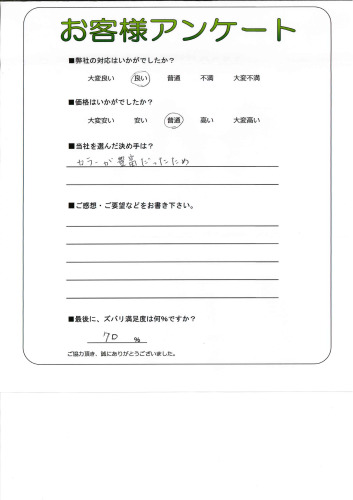 お客様アンケート
■弊社の対応はいかがでしたか?
大変良い 良い 普通 不満 大変不満
■価格はいかがでしたか?
大変安い 安い 普通 高い 大変高い
■当社を選んだ決め手は?
カラーが豊富だったため
■ご感想・ご要望などをお書き下さい。
■最後に、ズバリ満足度は何%ですか?
70 %
ご協力頂き、誠にありがとうございました。